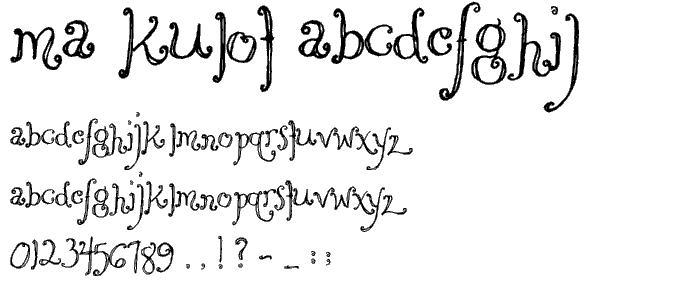 ma kulot abcdefghij
abcdefghijklmnopqrstuvwxyz
abcdefghijklmnopqrstuvwxyz
0123456789 . , ! ? ~ _ : ;